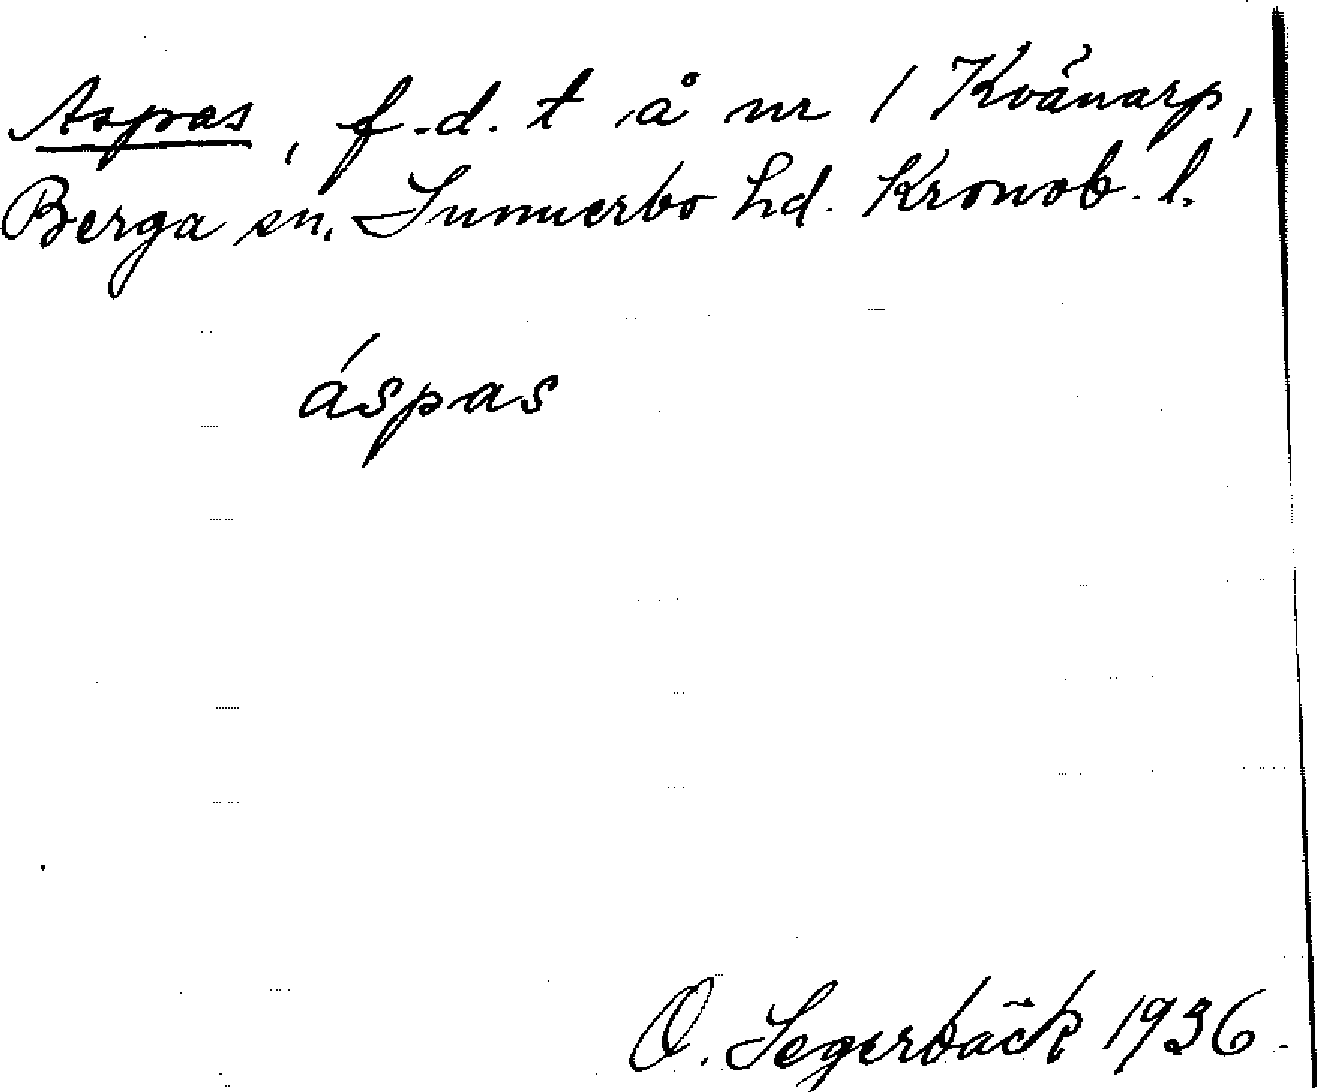 Aspas, f.d. t å nr 1 Kvänarp,
Berga sn. Sunnerbo hd. Kronob. l.
áspas
O. Segerbäck 1936.